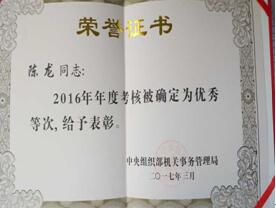 荣誉证书
陈龙同志:
2016年年度考核被确定为优秀
等次,给予表彰。
中央组织部机关事务管理局
二〇一七年三月